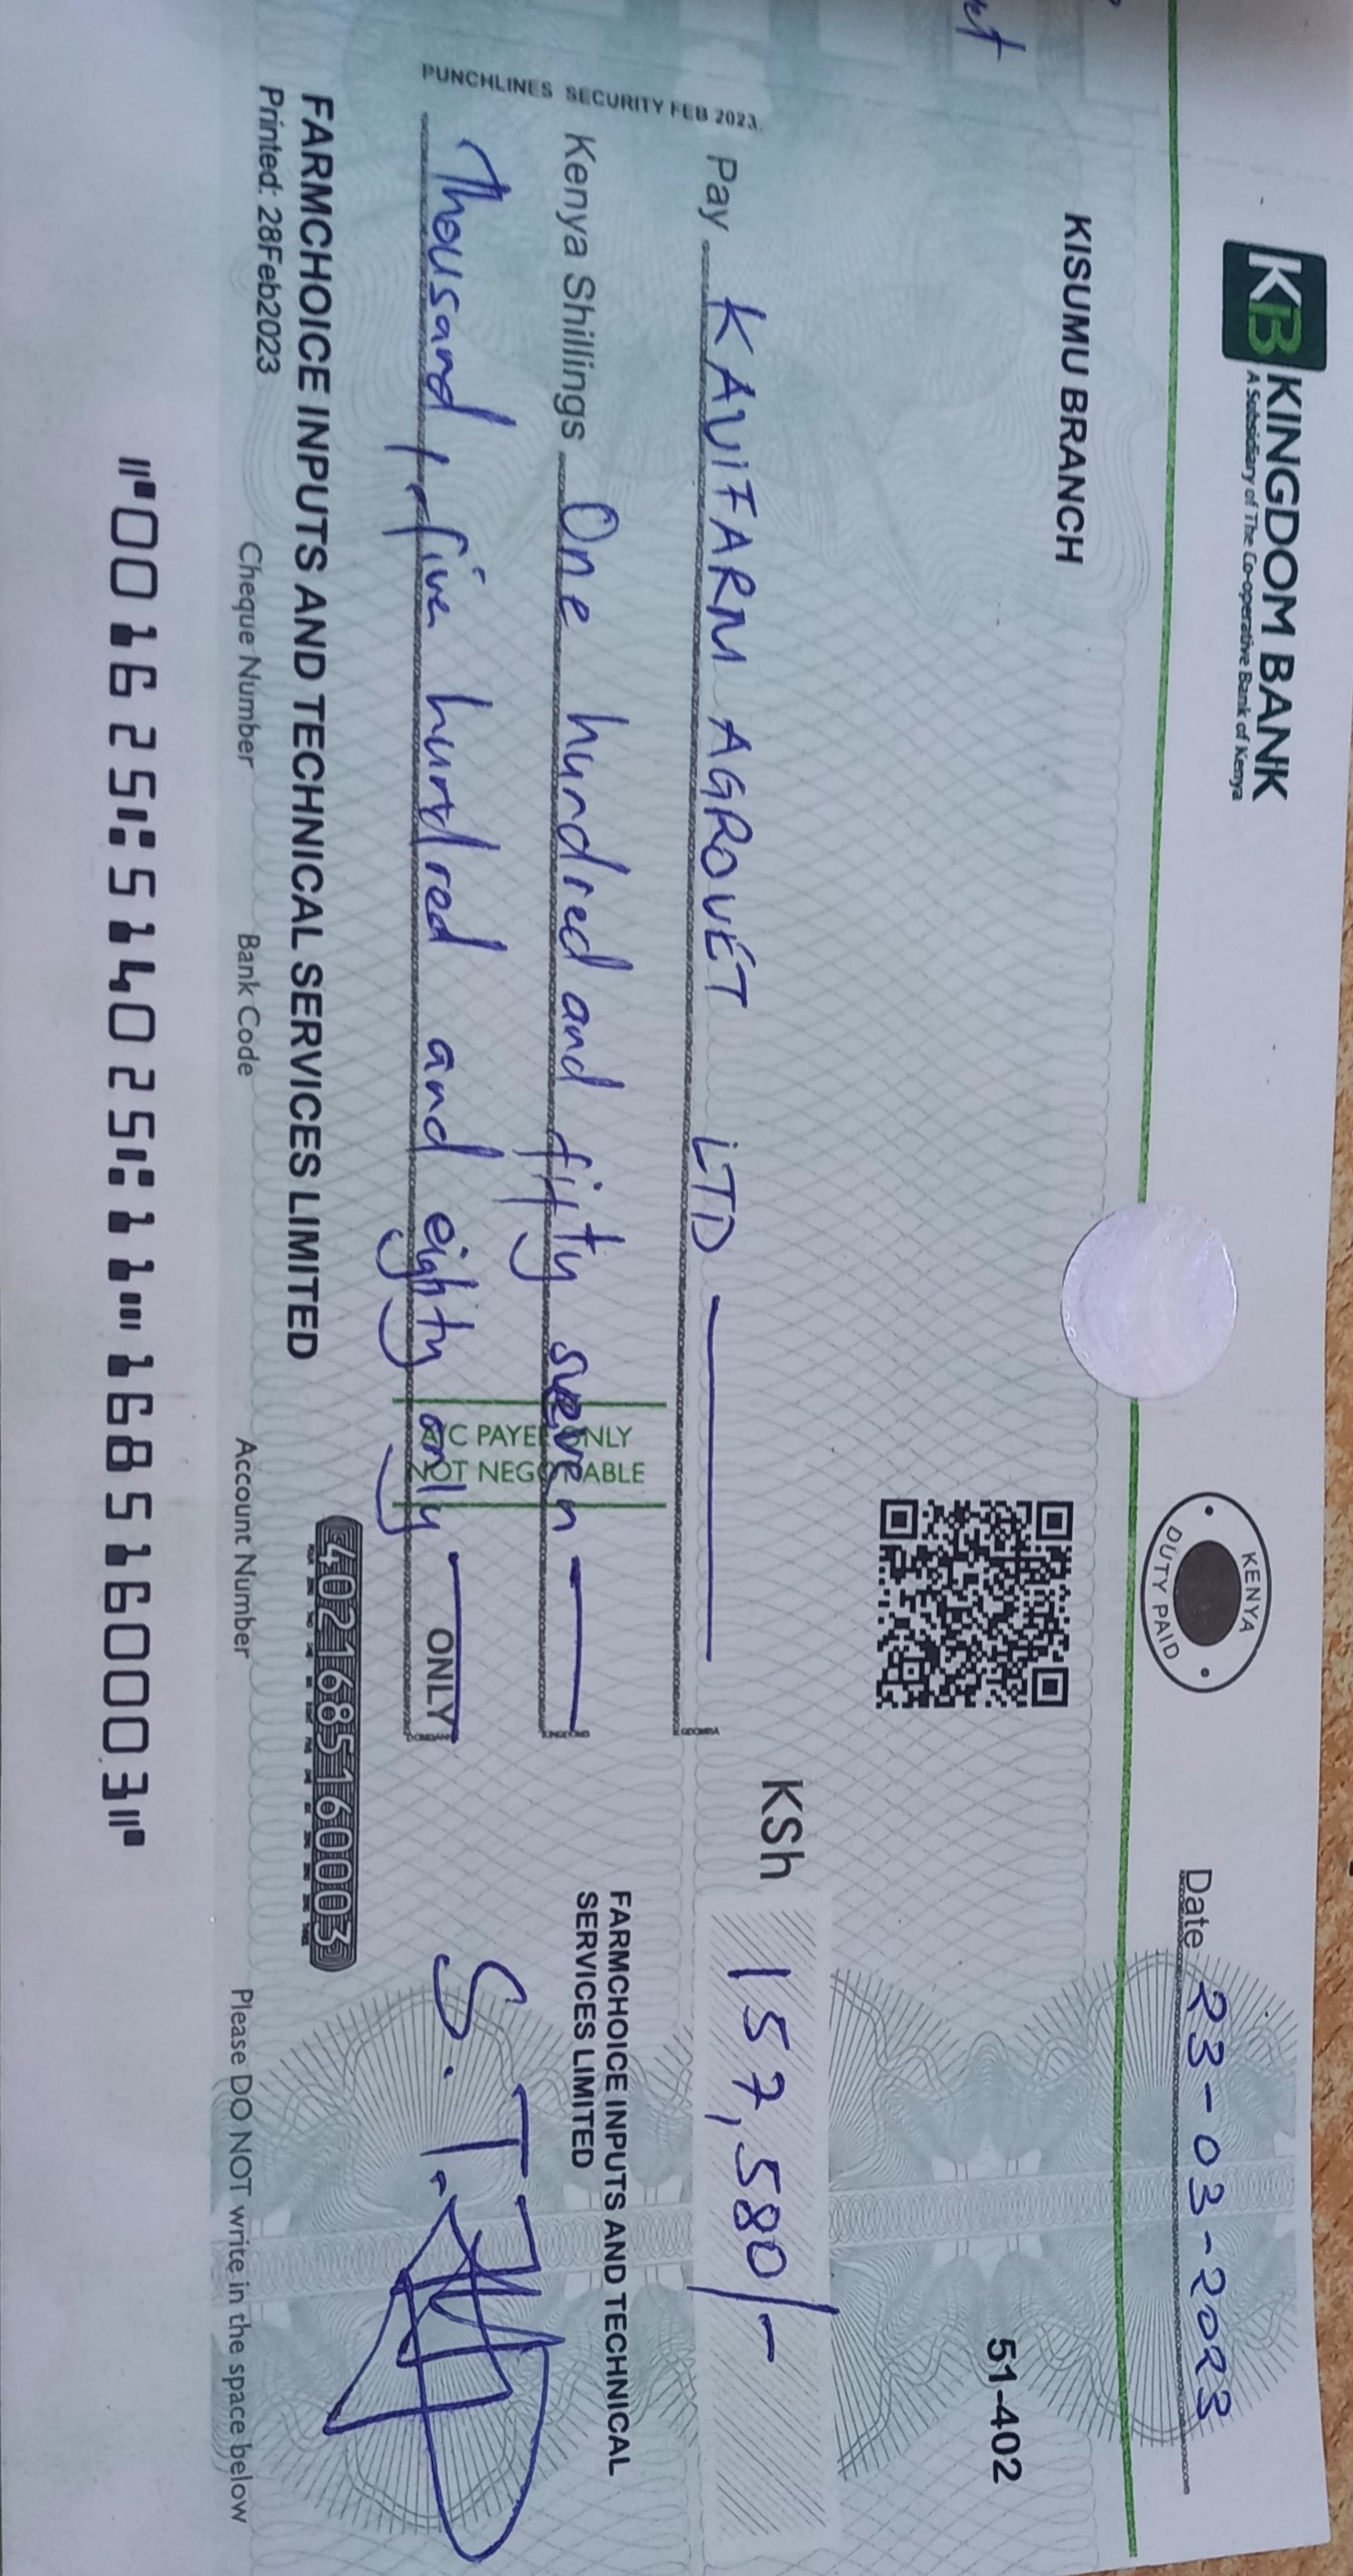 KB KINGDOM BANK
A Subsidiary of The Co-operative Bank of Kenya
KENYA
DUTY PAID
Date 23-03-2023
KISUMU BRANCH
51-402
PUNCHLINES SECURITY FEB 2023
KSh 157,580/-
Pay KAVIFARM AGROVET LTD
Kenya Shillings One hundred and fifty seven
Thousand, five hundred and eighty only ONLY
A/C PAYEE ONLY
NOT NEGOTIABLE
FARMCHOICE INPUTS AND TECHNICAL
SERVICES LIMITED
FARMCHOICE INPUTS AND TECHNICAL SERVICES LIMITED
Printed: 28Feb2023
4021685160003
S.T.
Cheque Number Bank Code Account Number Please DO NOT write in the space below
⑈001625⑆514025⑆11⑉1685160003⑈